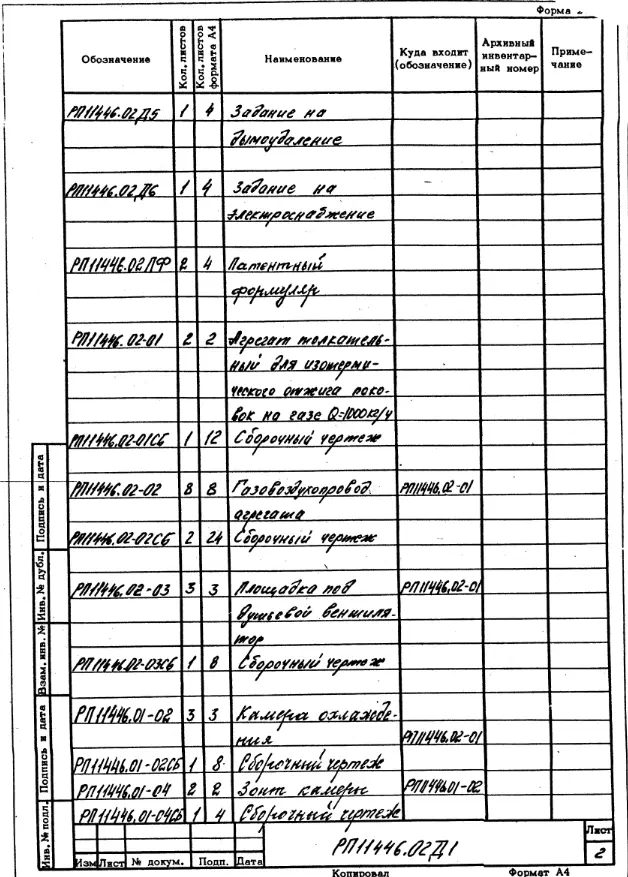 Форма
Обозначение Кол. листов Кол. листов формата А4 Наименование Куда входит (обозначение) Архивный инвентарный номер Примечание
РП11446.02Д5 1 4 Задание на
дымоудаление
РП11446.02Д6 1 4 Задание на
электроснабжение
РП11446.02ПФ 2 4 Патентный
формуляр
РП11446.02-01 2 2 Агрегат толкатель-
ный для изотерми-
ческого отжига поко-
вок на газе Q=1000кг/ч
РП11446.02-01СБ 1 12 Сборочный чертеж
РП11446.02-02 8 8 Газовоздухопровод РП11446.02-01
агрегата
РП11446.02-02СБ 2 24 Сборочный чертеж
РП11446.02-03 3 3 Площадка под РП11446.02-01
душевой вентиля-
тор
РП11446.02-03СБ 1 8 Сборочный чертеж
РП11446.01-02 3 3 Камера охлажде-
ния РП11446.02-01
РП11446.01-02СБ 1 8 Сборочный чертеж
РП11446.01-04 2 2 Зонт камеры РП11446.01-02
РП11446.01-04СБ 1 4 Сборочный чертеж
Подпись и дата
Инв. № дубл.
Взам. инв. №
Подпись и дата
Инв. № подл.
Изм Лист № докум. Подп. Дата
РП11446.02Д1
Лист
2
Копировал Формат А4